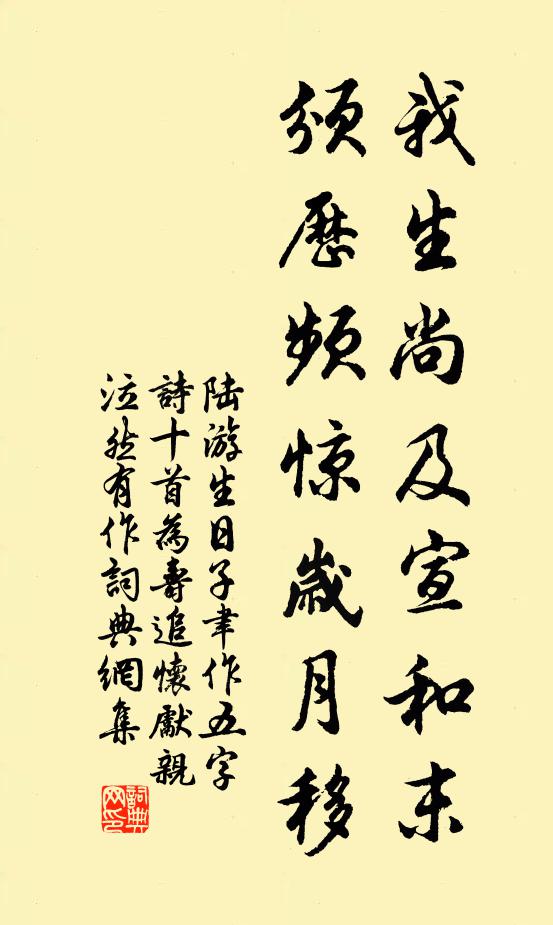 我生尚及宣和末
颁歷频惊歲月移
陆游生日子聿作五字
詩十首為壽追懷獻親
泣然有作詞典網集
詞典网印